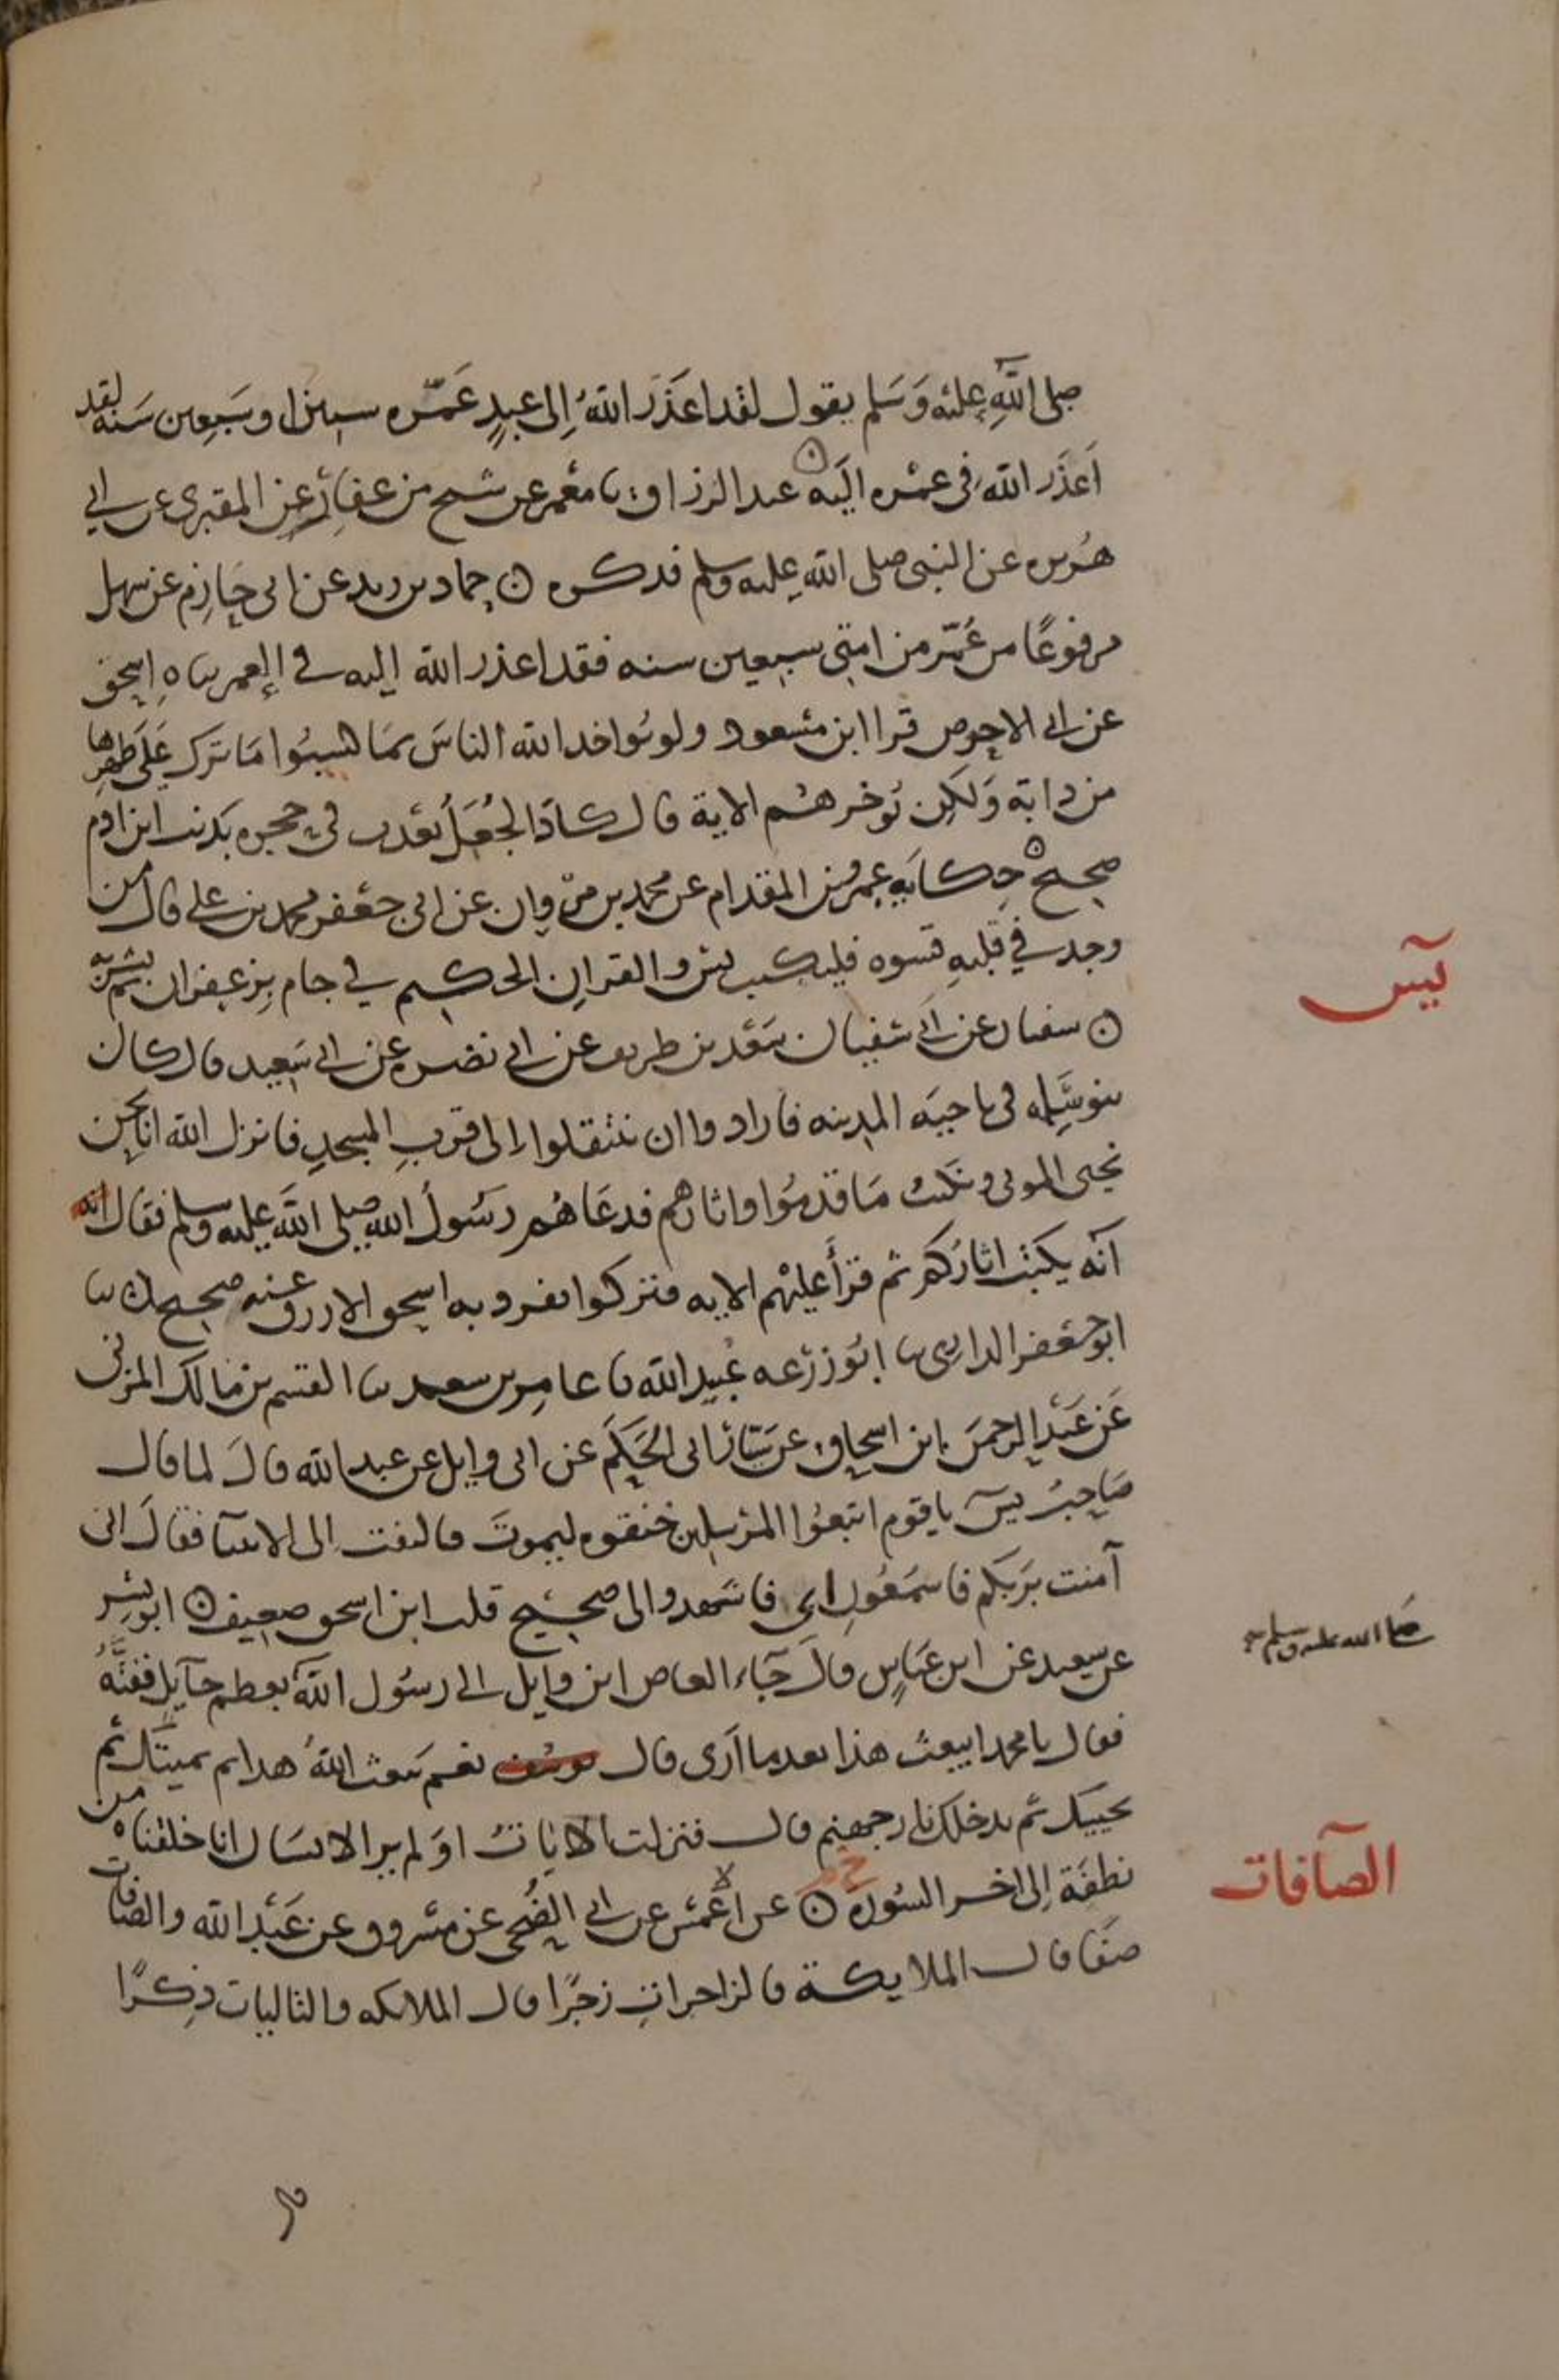 صلى الله عليه وسلم يقول لقد اعذر الله الى عبد عمّره ستين او سبعين سنه لقد
اعذر الله فى عمره اليه ۞ عبد الرزاق نا معمر عن شيخ من غفار عن المقبرى عن ابي
هريره عن النبى صلى الله عليه وسلم فذكره ۞ حماد بن زيد عن ابى حازم عن سهل
مرفوعًا من عُمّر من امتى سبعين سنه فقد اعذر الله اليه في العمر اسحق
عن ابي الاحوص قرا ابن مسعود ولو يُواخذ الله الناسَ بمَا كسبُوا مَا ترك عَلى ظهرها
من دابة وَلكن يُوخرهم الاية قال كادَ الجُعَل يعذب فى جحره بذنب ابن ادم
صحيح ۞ حكايه عمرو بن المقدام عن محمد بن مروان عن ابى جعفر محمد بن علي قال من
وجد في قلبه قسوه فليكتب يس والقران الحكيم في جام بزعفران ثم يشربه
۞ سفيان عن ابى سفيان سَعْد بن طريف عن ابي نضره عن ابي سَعيد قال كان
بنو سَلِمه فى ناحيَه المدينه فارادوا ان ينتقلوا الى قرب المسجد فانزل الله انا نحن
نحيى الموتى ونكتب مَا قدمُوا واثارهم فدعَاهُم رسُولُ الله صلى الله عليه وسلم فقال انه
انه يكتب اثاركم ثم قرأ عليهم الايه فتركوا تفرد به اسحق الازرق عنه صحيح نا
ابو جعفر الدارى نا ابُو زرعه عُبيد الله نا عامر بن سعد نا القسم بن مالك المزنى
عَن عَبْد الرحمن ابن اسحاق عن سَيّار ابى الحَكَم عن ابى وايل عن عبد الله قالَ لما قال
صَاحبُ يسَ يا قوم اتبعُوا المرْسلين خنقوه ليموتَ فالتفت الى الانبيآ فقالَ انى
آمنت بربكم فاسمَعُون اى فاشهدوا لى صحيح قلت ابن اسحق ضعيف ۞ ابو بشر
عن سعيد عن ابن عَباسٍ قالَ جآء العاص ابن وايل الى رسُول الله بعظم حآيل ففتَّهُ
صلى الله عليه وسلم صح
فقال يا محمد ايبعث هذا بعد ما اَرى قال نعم يَبعث اللهُ هدا ثم يميتك ثم
يحييك ثم يدخلك نار جهنم قال فنزلت الايات اوَ لم ير الانسان انا خلقناه من
نطفَة إلى اخر السُورة ۞ عن الاعمش عن ابي الضُحى عن مسْروق عن عَبْد الله والصافات
صَفا قال الملايكة فالزاجرات زجرًا قال الملايكه والتاليات ذِكرًا
يآس
الصآفات